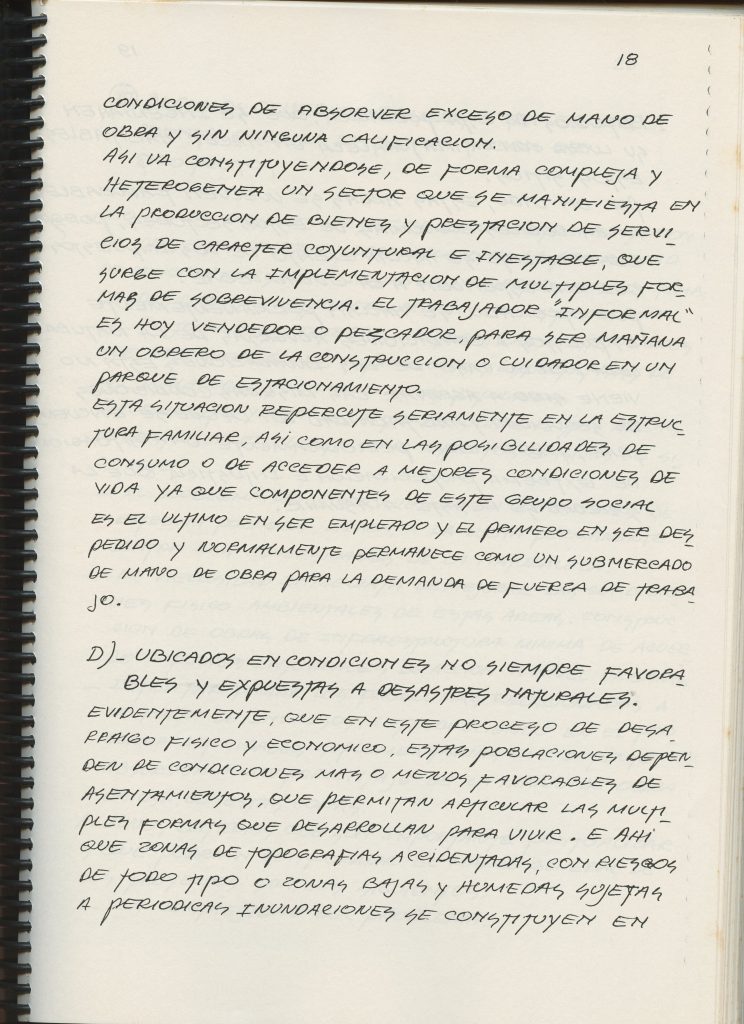 18
CONDICIONES DE ABSORVER EXCESO DE MANO DE
OBRA Y SIN NINGUNA CALIFICACION.
ASI VA CONSTITUYENDOSE, DE FORMA COMPLEJA Y
HETEROGENEA UN SECTOR QUE SE MANIFIESTA EN
LA PRODUCCION DE BIENES Y PRESTACION DE SERVI-
CIOS DE CARACTER COYUNTURAL E INESTABLE, QUE
SURGE CON LA IMPLEMENTACION DE MULTIPLES FOR-
MAS DE SOBREVIVENCIA. EL TRABAJADOR "INFORMAL"
ES HOY VENDEDOR O PESCADOR, PARA SER MAÑANA
UN OBRERO DE LA CONSTRUCCION O CUIDADOR EN UN
PARQUE DE ESTACIONAMIENTO.
ESTA SITUACION REPERCUTE SERIAMENTE EN LA ESTRUC-
TURA FAMILIAR, ASI COMO EN LAS POSIBILIDADES DE
CONSUMO O DE ACCEDER A MEJORES CONDICIONES DE
VIDA YA QUE COMPONENTES DE ESTE GRUPO SOCIAL
ES EL ULTIMO EN SER EMPLEADO Y EL PRIMERO EN SER DES-
PEDIDO Y NORMALMENTE PERMANECE COMO UN SUBMERCADO
DE MANO DE OBRA PARA LA DEMANDA DE FUERZA DE TRABA-
JO.
D)- UBICADOS EN CONDICIONES NO SIEMPRE FAVORA-
BLES Y EXPUESTAS A DESASTRES NATURALES.
EVIDENTEMENTE, QUE EN ESTE PROCESO DE DESA-
RRAIGO FISICO Y ECONOMICO, ESTAS POBLACIONES DEPEN-
DEN DE CONDICIONES MAS O MENOS FAVORABLES DE
ASENTAMIENTOS, QUE PERMITAN ARTICULAR LAS MULTI-
PLES FORMAS QUE DESARROLLAN PARA VIVIR. E AHI
QUE ZONAS DE TOPOGRAFIAS ACCIDENTADAS, CON RIESGOS
DE TODO TIPO O ZONAS BAJAS Y HUMEDAS SUJETAS
A PERIODICAS INUNDACIONES SE CONSTITUYEN EN